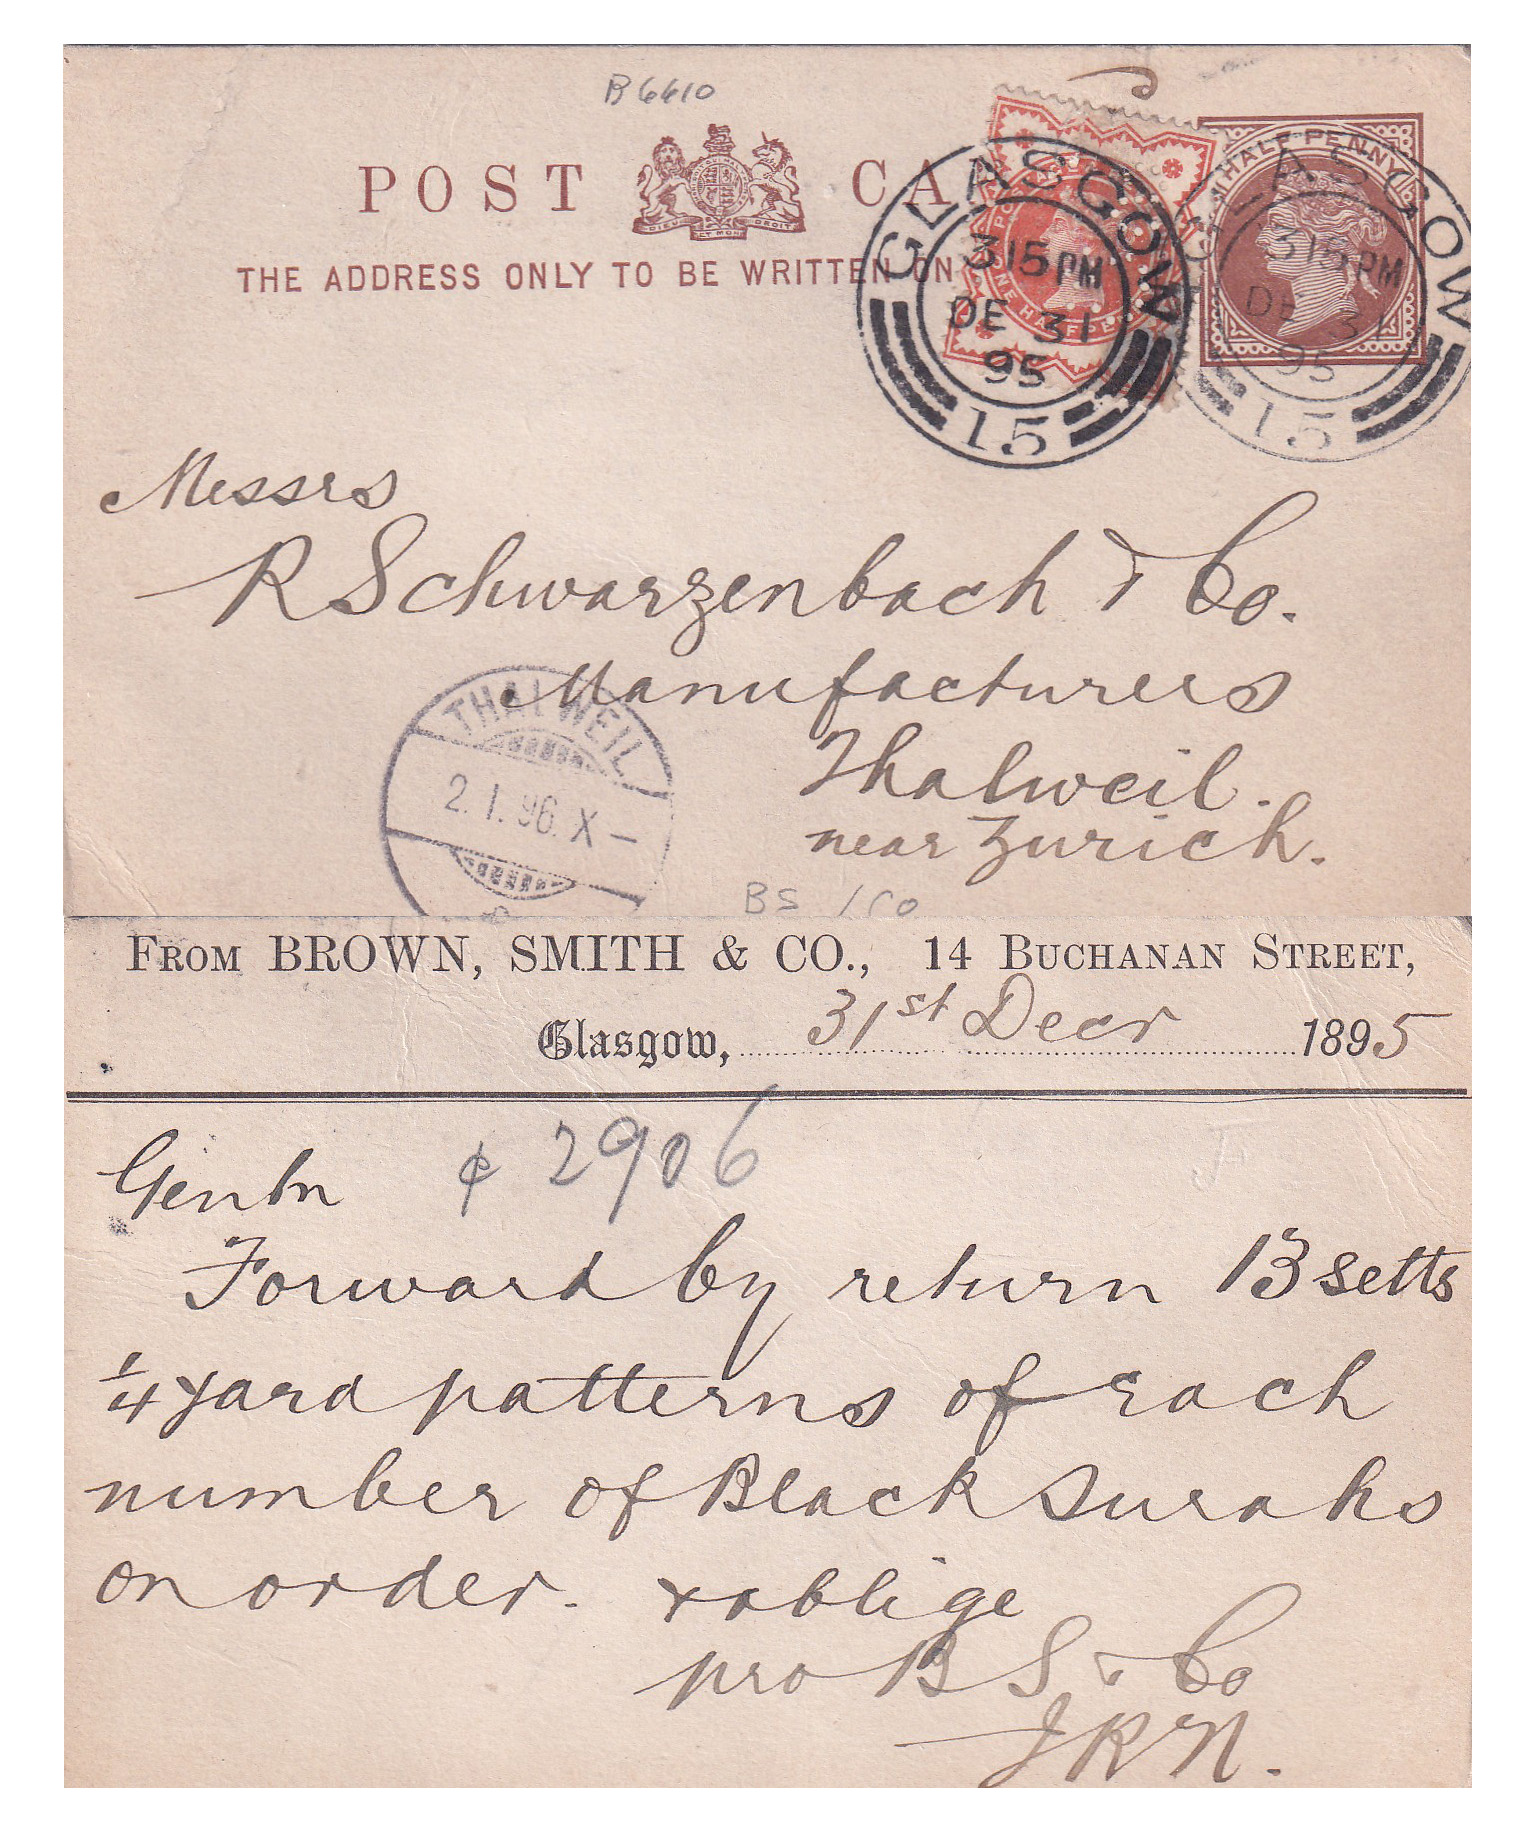 B6610
POST CA
THE ADDRESS ONLY TO BE WRITTEN ON
HALF PENNY
GLASGOW
315PM
DE 31
95
15
GLASGOW
315PM
DE 31
95
15
Messrs
R Schwarzenbach & Co.
Manufacturers
Thalweil.
near Zurich.
THALWEIL
2.I.96.X–
BS
FROM BROWN, SMITH & CO., 14 BUCHANAN STREET,
Glasgow, 31st Decr 1895
Gentn ¢ 2906
Forward by return 13 setts
1/4 yard patterns of each
number of Black Surahs
on order. & oblige
pro B S & Co
J R N.